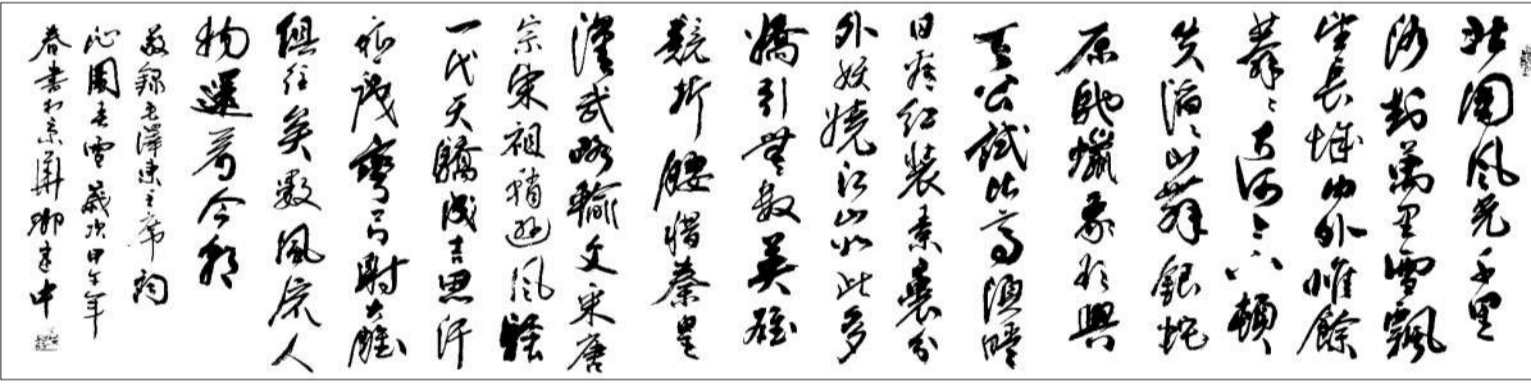 北國風光千里
冰封萬里雪飄
望長城內外惟餘
莽〻大河上下頓
失滔〻山舞銀蛇
原馳蠟象欲與
天公試比高須晴
日看紅裝素裹分
外妖嬈江山如此多
嬌引無數英雄
競折腰惜秦皇
漢武略輸文采唐
宗宋祖稍遜風騷
一代天驕成吉思汗
祇識彎弓射大雕
俱往矣數風流人
物還看今朝
敬錄毛澤東主席詞
沁園春雪歲次甲午年
春書於京華建中